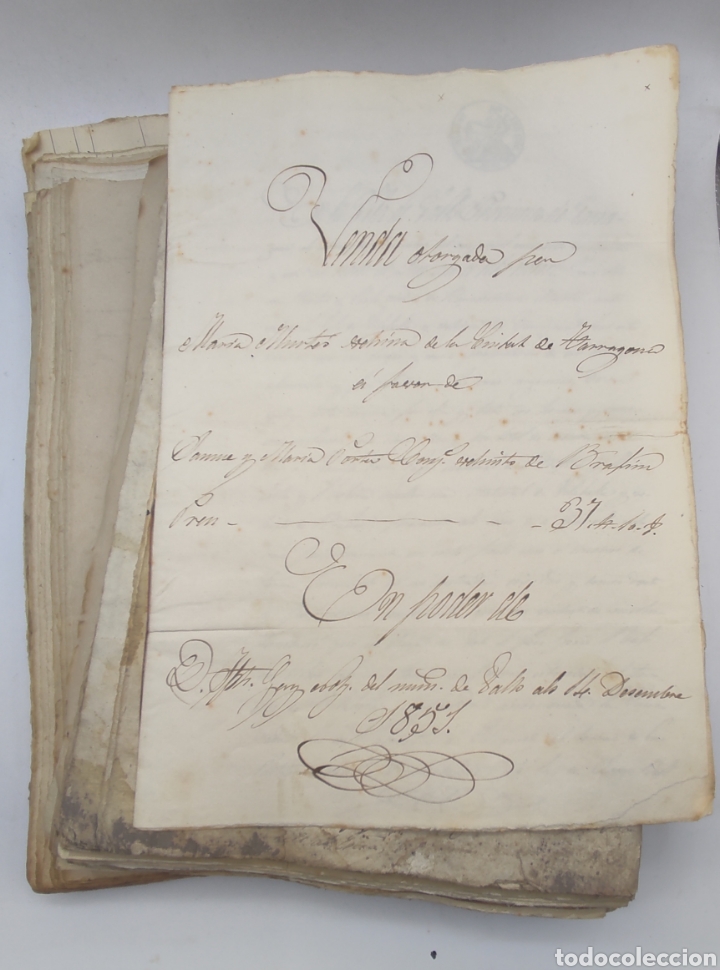 Venda otorgada per
Maria Murtes vehina de la Ciutat de Tarragona
á favor de
Jaume y Maria Cony. vehints de Brafim
Preu - 37
En poder de
D. del num. de Valls als 14 Desembre
1851.
todocoleccion